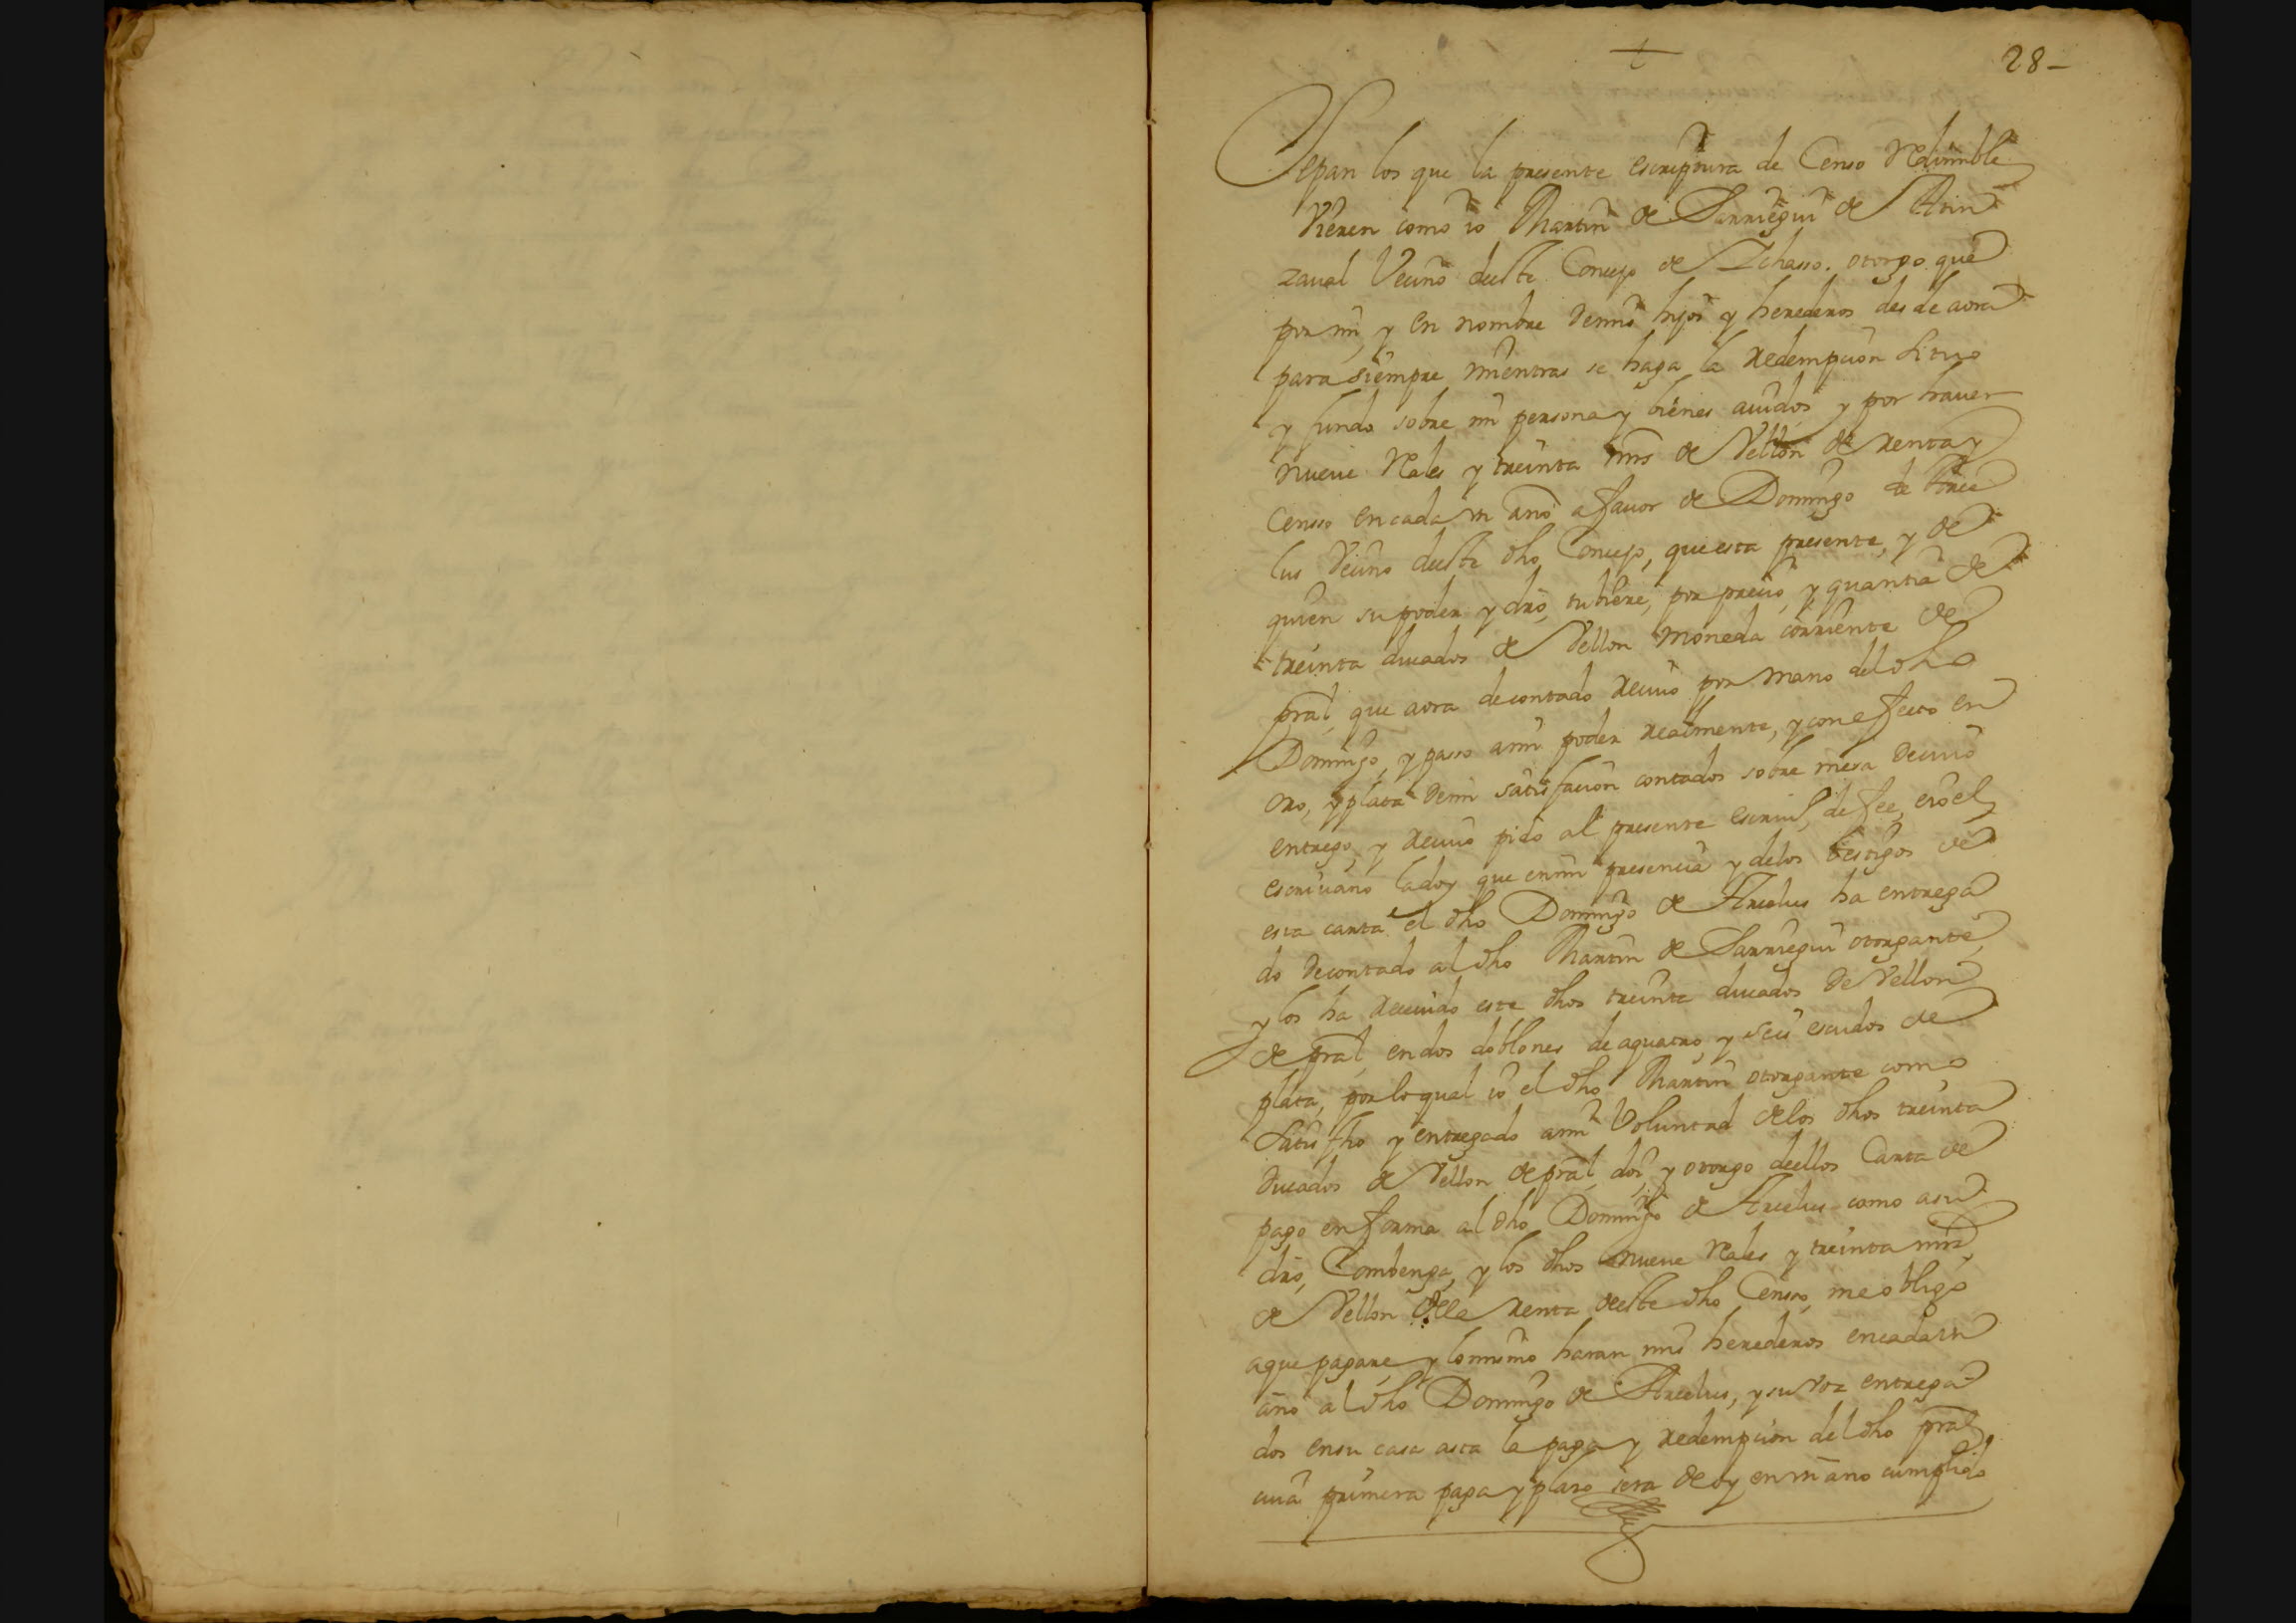 28-
Sepan los que la presente escriptura de Censo Redimible
Vieren como io Martin de Sarriegui de Arin
zaval Vecino deeste Concejo de Ichasso. otorgo que
por mi, y en nombre demis hijos y herederos desde aora
para siempre mientras se haga la redempcion situo
y fundo sobre mi persona y bienes auidos y por hauer
nueue Rales y treinta mrs de Vellon de renta y
Censso en cada un año a fauor de Domingo de Arce
lus Vecino deeste dho Concejo, que esta presente, y de
quien su poder y dro, tubiere, por precio, y quantia de
treinta ducados de Vellon moneda corriente de
pral, que aora decontado reciuo por mano del dho
Domingo, y passo ami poder realmente, y con efecto en
oro, y plata demi satisfacion contados sobre mesa decuio
entrego, y reciuo pido al presente escriu, de fee, eio el
escriuano la doy que enmi presencia y delos testigos de
esta carta el dho Domingo de Arcelus ha entrega
do decontado al dho Martin de Sarriegui otorgante,
y los ha receuido este dhos treinta ducados de Vellon
de pral, en dos doblones de aquatro, y seis escudos de
plata, por lo qual io el dho Martin otorgante como
Satisfho y entregado ami Voluntad delos dhos treinta
Ducados de Vellon de pral, doi, y otorgo deellos Carta de
pago en forma al dho Domingo de Arcelus como asu
dro, Combenga, y los dhos nueue Rales y treinta mrs,
de Vellon dela renta deeste dho Censso, me obligo
aque pagare, y lo mismo haran mis herederos encada un
año al dho Domingo de Arcelus, y su voz entrega
dos en su casa asta la paga y redempcion del dho pral
cuia primera paga y plazo sera de oy en un año cumplido